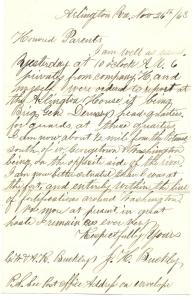 Arlington Va. Nov 26th /63
Honored Parents
I am well as usual
Yesterday at 10 o'clock A.M. 6
privates from company H, and
myself were ordered to report at
the Arlington House it being
Brig. Gen. Head quarters
of guards at these quarters
I am now about ½ mile from the
south of Georgetown & Washington
being on the opposite side of the river
I am your better than I was at
the fort, and entirely within the line
of fortifications around Washington
at present in great
haste I remain as ever
Respectfully Yours
J. H. Buckley
C. W. & H. K. Buckley
P.S. Post office Address on envelope